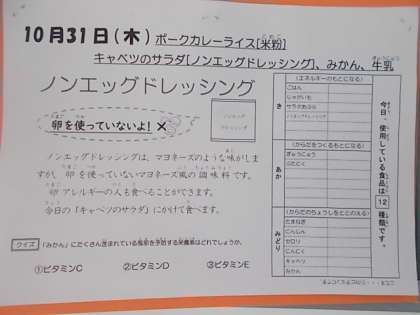 10月31日(木) ポークカレーライス[米粉]
キャベツのサラダ[ノンエッグドレッシング]、みかん、牛乳
ノンエッグドレッシング
卵を使っていないよ!
ノンエッグ
ドレッシング
ノンエッグドレッシングは、マヨネーズのような味がしま
すが、卵を使っていないマヨネーズ風の調味料です。
卵アレルギーの人も食べることができます。
今日の「キャベツのサラダ」にかけて食べます。
クイズ 「みかん」にたくさん含まれている風邪を予防する栄養素はどれでしょうか。
①ビタミンC ②ビタミンD ③ビタミンE
今日、使用している食品は12種類です。
き
(エネルギーのもとになる)
ごはん
じゃがいも
サラダあぶら
ノンエッグドレッシング
あか
(からだをつくるもとになる)
ぎゅうにゅう
ぶたにく
みどり
(からだのちょうしをととのえる)
たまねぎ
にんじん
セロリ
にんにく
キャベツ
みかん